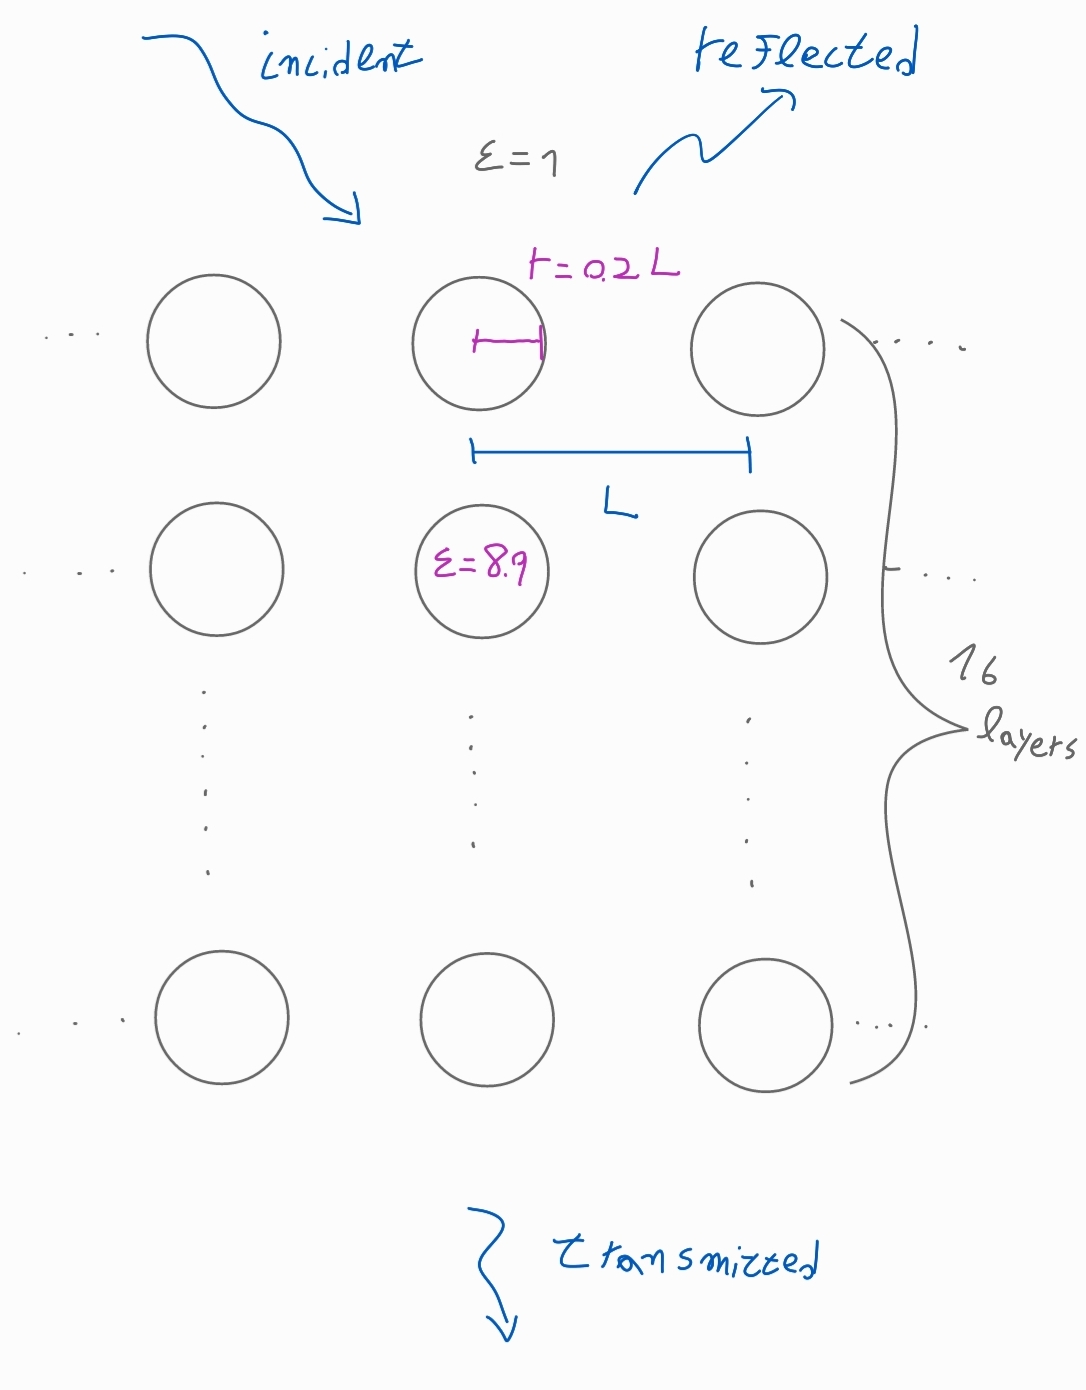 incident
reflected
ε=1
r=0.2L
L
ε=8.9
16
layers
transmitted